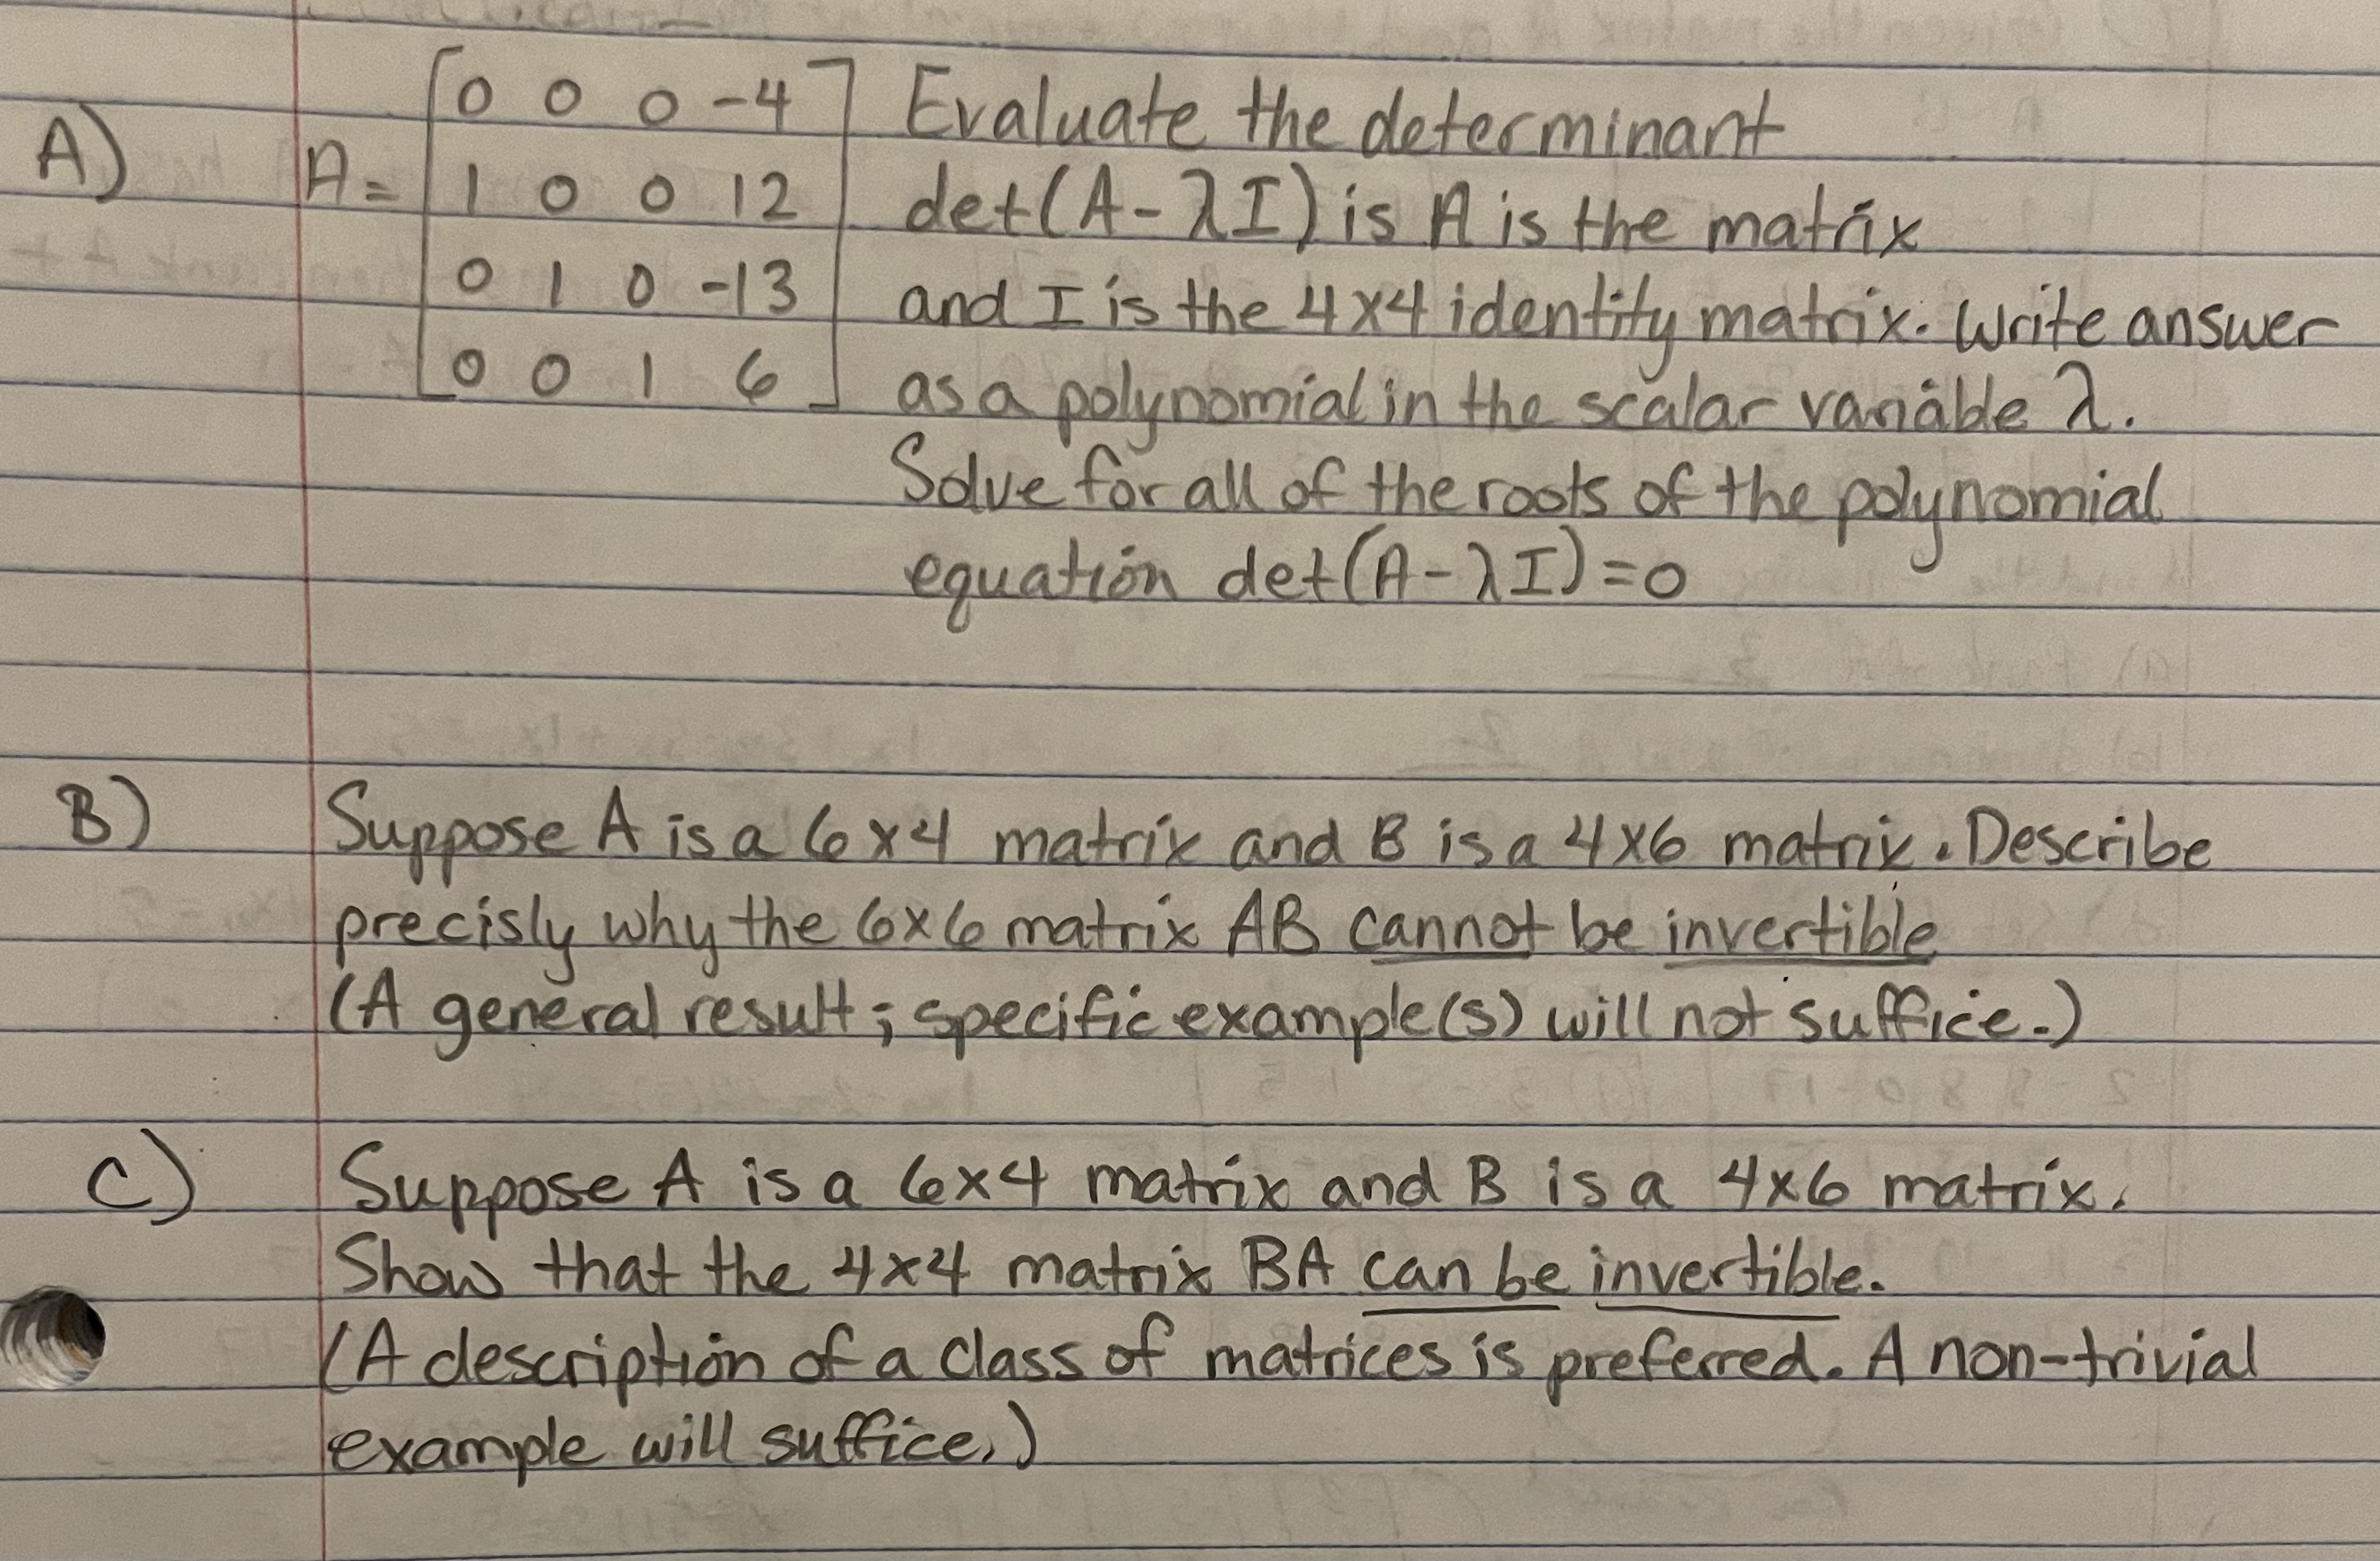 A) A = [0 0 0 -4 Evaluate the determinant
1 0 0 12 det(A-λI) is A is the matrix
0 1 0 -13 and I is the 4x4 identity matrix. Write answer
0 0 1 6] as a polynomial in the scalar variable λ.
Solve for all of the roots of the polynomial
equation det(A-λI)=0
B) Suppose A is a 6x4 matrix and B is a 4x6 matrix. Describe
precisly why the 6x6 matrix AB cannot be invertible
(A general result; specific example(s) will not suffice.)
C) Suppose A is a 6x4 matrix and B is a 4x6 matrix.
Show that the 4x4 matrix BA can be invertible.
(A description of a class of matrices is preferred. A non-trivial
example will suffice.)